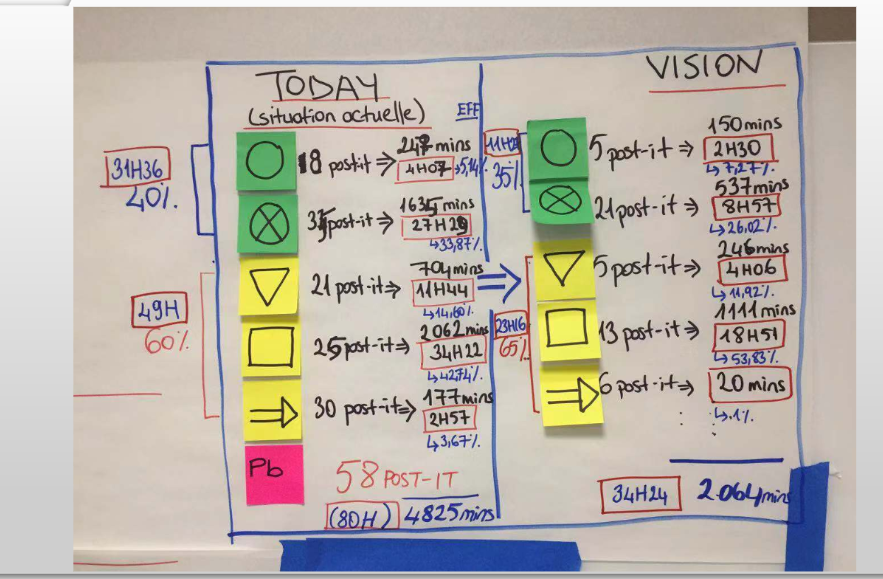 TODAY
(situation actuelle)
EFF
31H36
40%
18 post-it ⇒ 247 mins
4H07 →5,14%
35 post-it ⇒ 1635 mins
↳33,87%
49H
60%
21 post-it ⇒ 704 mins
11H44
↳14,60%
25 post-it ⇒ 2062 mins
34H22
↳42,74%
30 post-it ⇒ 177 mins
2H57
↳3,67%
Pb
58 POST-IT
(80H) 4825 mins
VISION
35%
5 post-it ⇒ 150 mins
2H30
↳7,27%
21 post-it ⇒ 537 mins
8H57
↳26,02%
5 post-it ⇒ 246 mins
4H06
↳11,92%
23H16
65%
13 post-it ⇒ 1111 mins
18H51
↳53,83%
6 post-it ⇒ 20 mins
↳.1%
34H24 2.064 mins